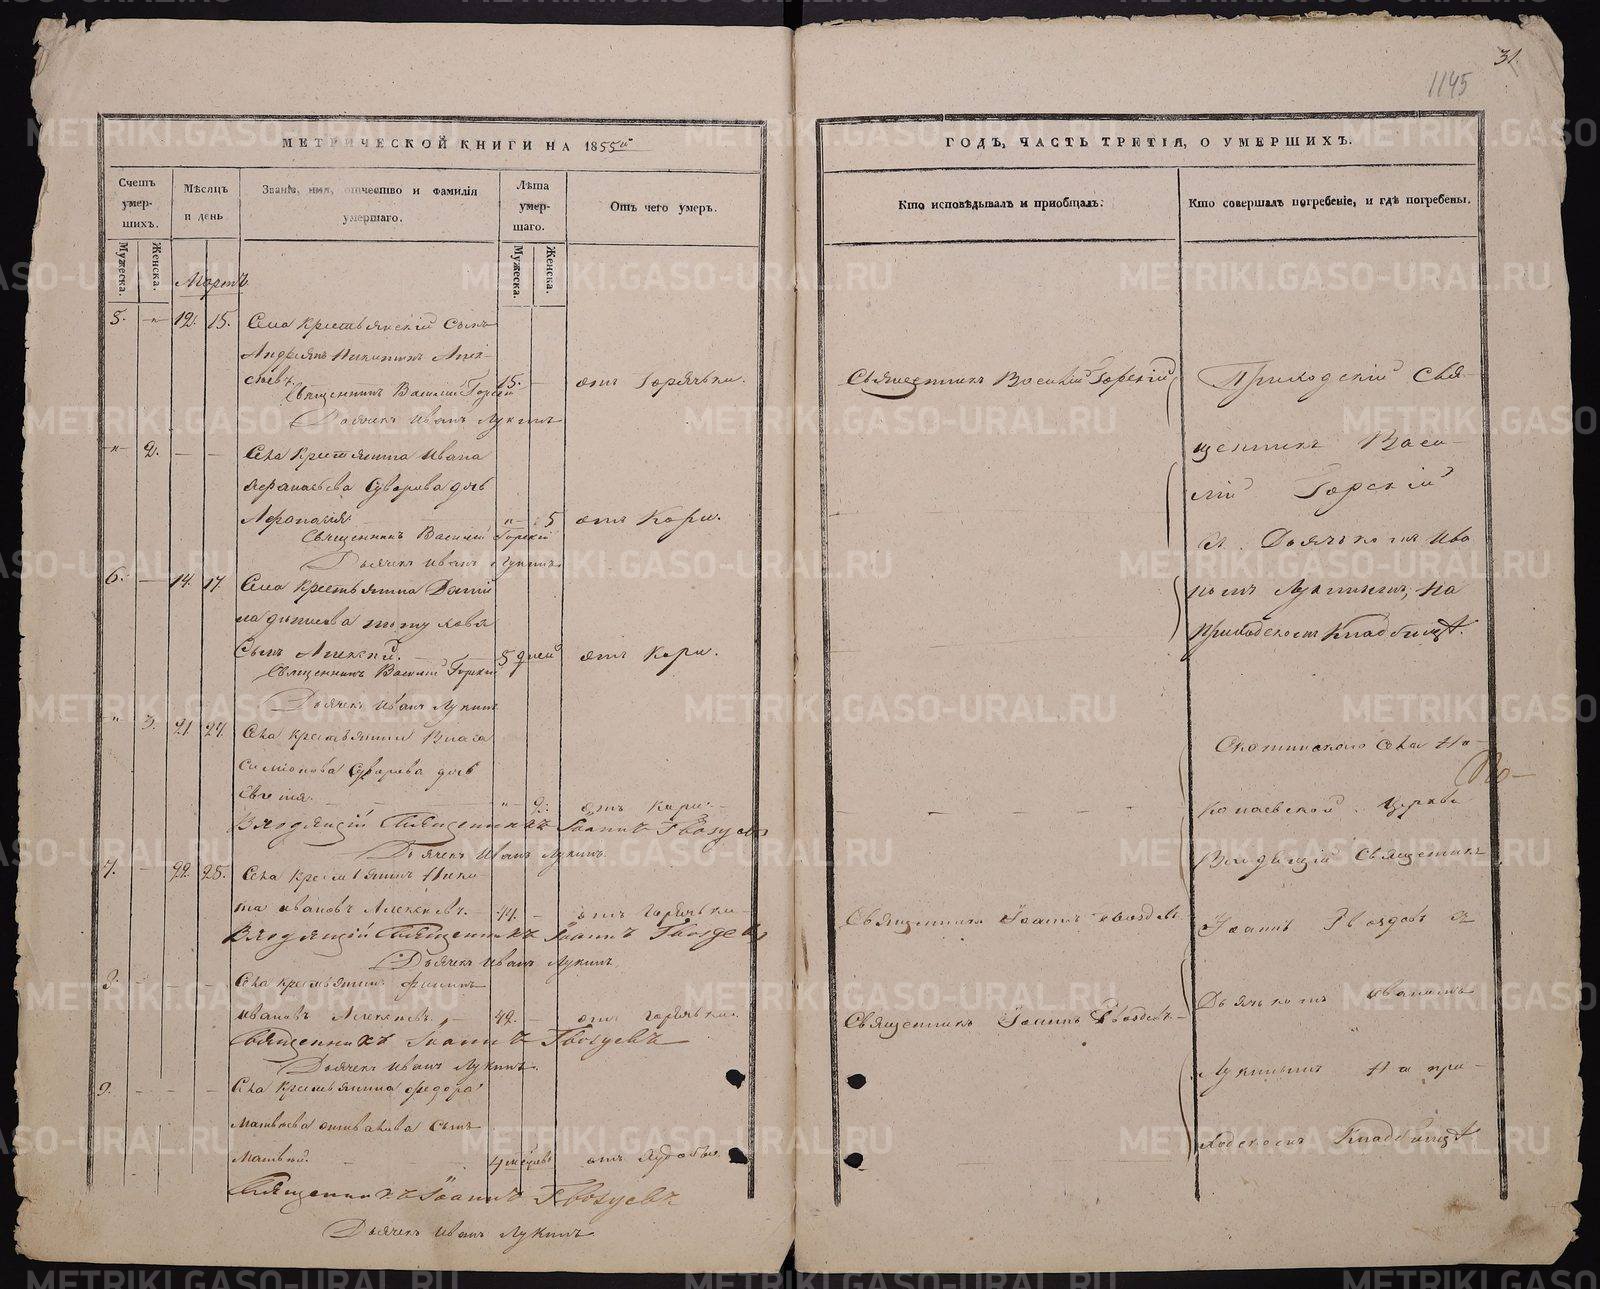 31.
1145
МЕТРИЧЕСКОЙ КНИГИ НА 1855й
ГОДЪ, ЧАСТЬ ТРЕТІЯ, О УМЕРШИХЪ.
Счетъ умершихъ.
Мѣсяцъ и день
Званіе, имя, отчество и фамилія умершаго.
Лѣта умершаго.
Отъ чего умеръ.
Кто исповѣдывалъ и приобщалъ.
Кто совершалъ погребеніе, и гдѣ погребены.
Мужеска.
Женска.
Мужеска.
Женска.
Мартъ
5. - 12. 15. Села Крестьянскій Сынъ
Андреянъ Никитинъ Алек-
сѣевъ 15. - отъ Горячьки. Священникъ Василій Горскій
Священникъ Василій Горскій
Дьячекъ Иванъ Лукинъ
" 2. - - Села Крестьянина Ивана
Суворова дочь
" 5 отъ Кори.
Священникъ Василій Горскій
Дьячекъ Иванъ Лукинъ
6. - 14. 17. Села Крестьянина
Сынъ Алексей. 5 дней отъ Кори.
Священникъ Василій Горскій
Дьячекъ Иванъ Лукинъ
Приходскій Свя-
щенникъ Васи-
лій Горскій
съ Дьячькомъ Ива
номъ Лукинымъ, на
приходскомъ Кладбищѣ.
" 3. 21. 24. Села Крестьянина Власа
Симіонова Суворова дочь
Евгенія. " 2. отъ Кори.
Входящій Священникъ Іоаннъ Гвоздевъ
Дьячекъ Иванъ Лукинъ.
7. - 22. 25. Села Крестьянинъ Ники
та Ивановъ Алексеевъ. 44. - отъ Горячьки Священникъ Іоаннъ Гвоздевъ.
Входящій Священникъ Іоаннъ Гвоздевъ
Дьячекъ Иванъ Лукинъ
8. - - - Села Крестьянинъ Филипъ
Ивановъ Алексеевъ. 42. - отъ Горячьки. Священникъ Іоаннъ Гвоздевъ.
Священникъ Іоаннъ Гвоздевъ
Дьячекъ Иванъ Лукинъ.
9. - - - Села Крестьянина Федора
Матвѣева Сынъ
Матвей. 4 месяцовъ отъ худобы.
Священникъ Іоаннъ Гвоздевъ
Дьячекъ Иванъ Лукинъ
села Ни-
Церкви
Входящій Священникъ
Іоаннъ Гвоздевъ съ
Дьячькомъ Иваномъ
Лукинымъ На при-
ходскомъ Кладбищѣ
METRIKI.GASO-URAL.RU